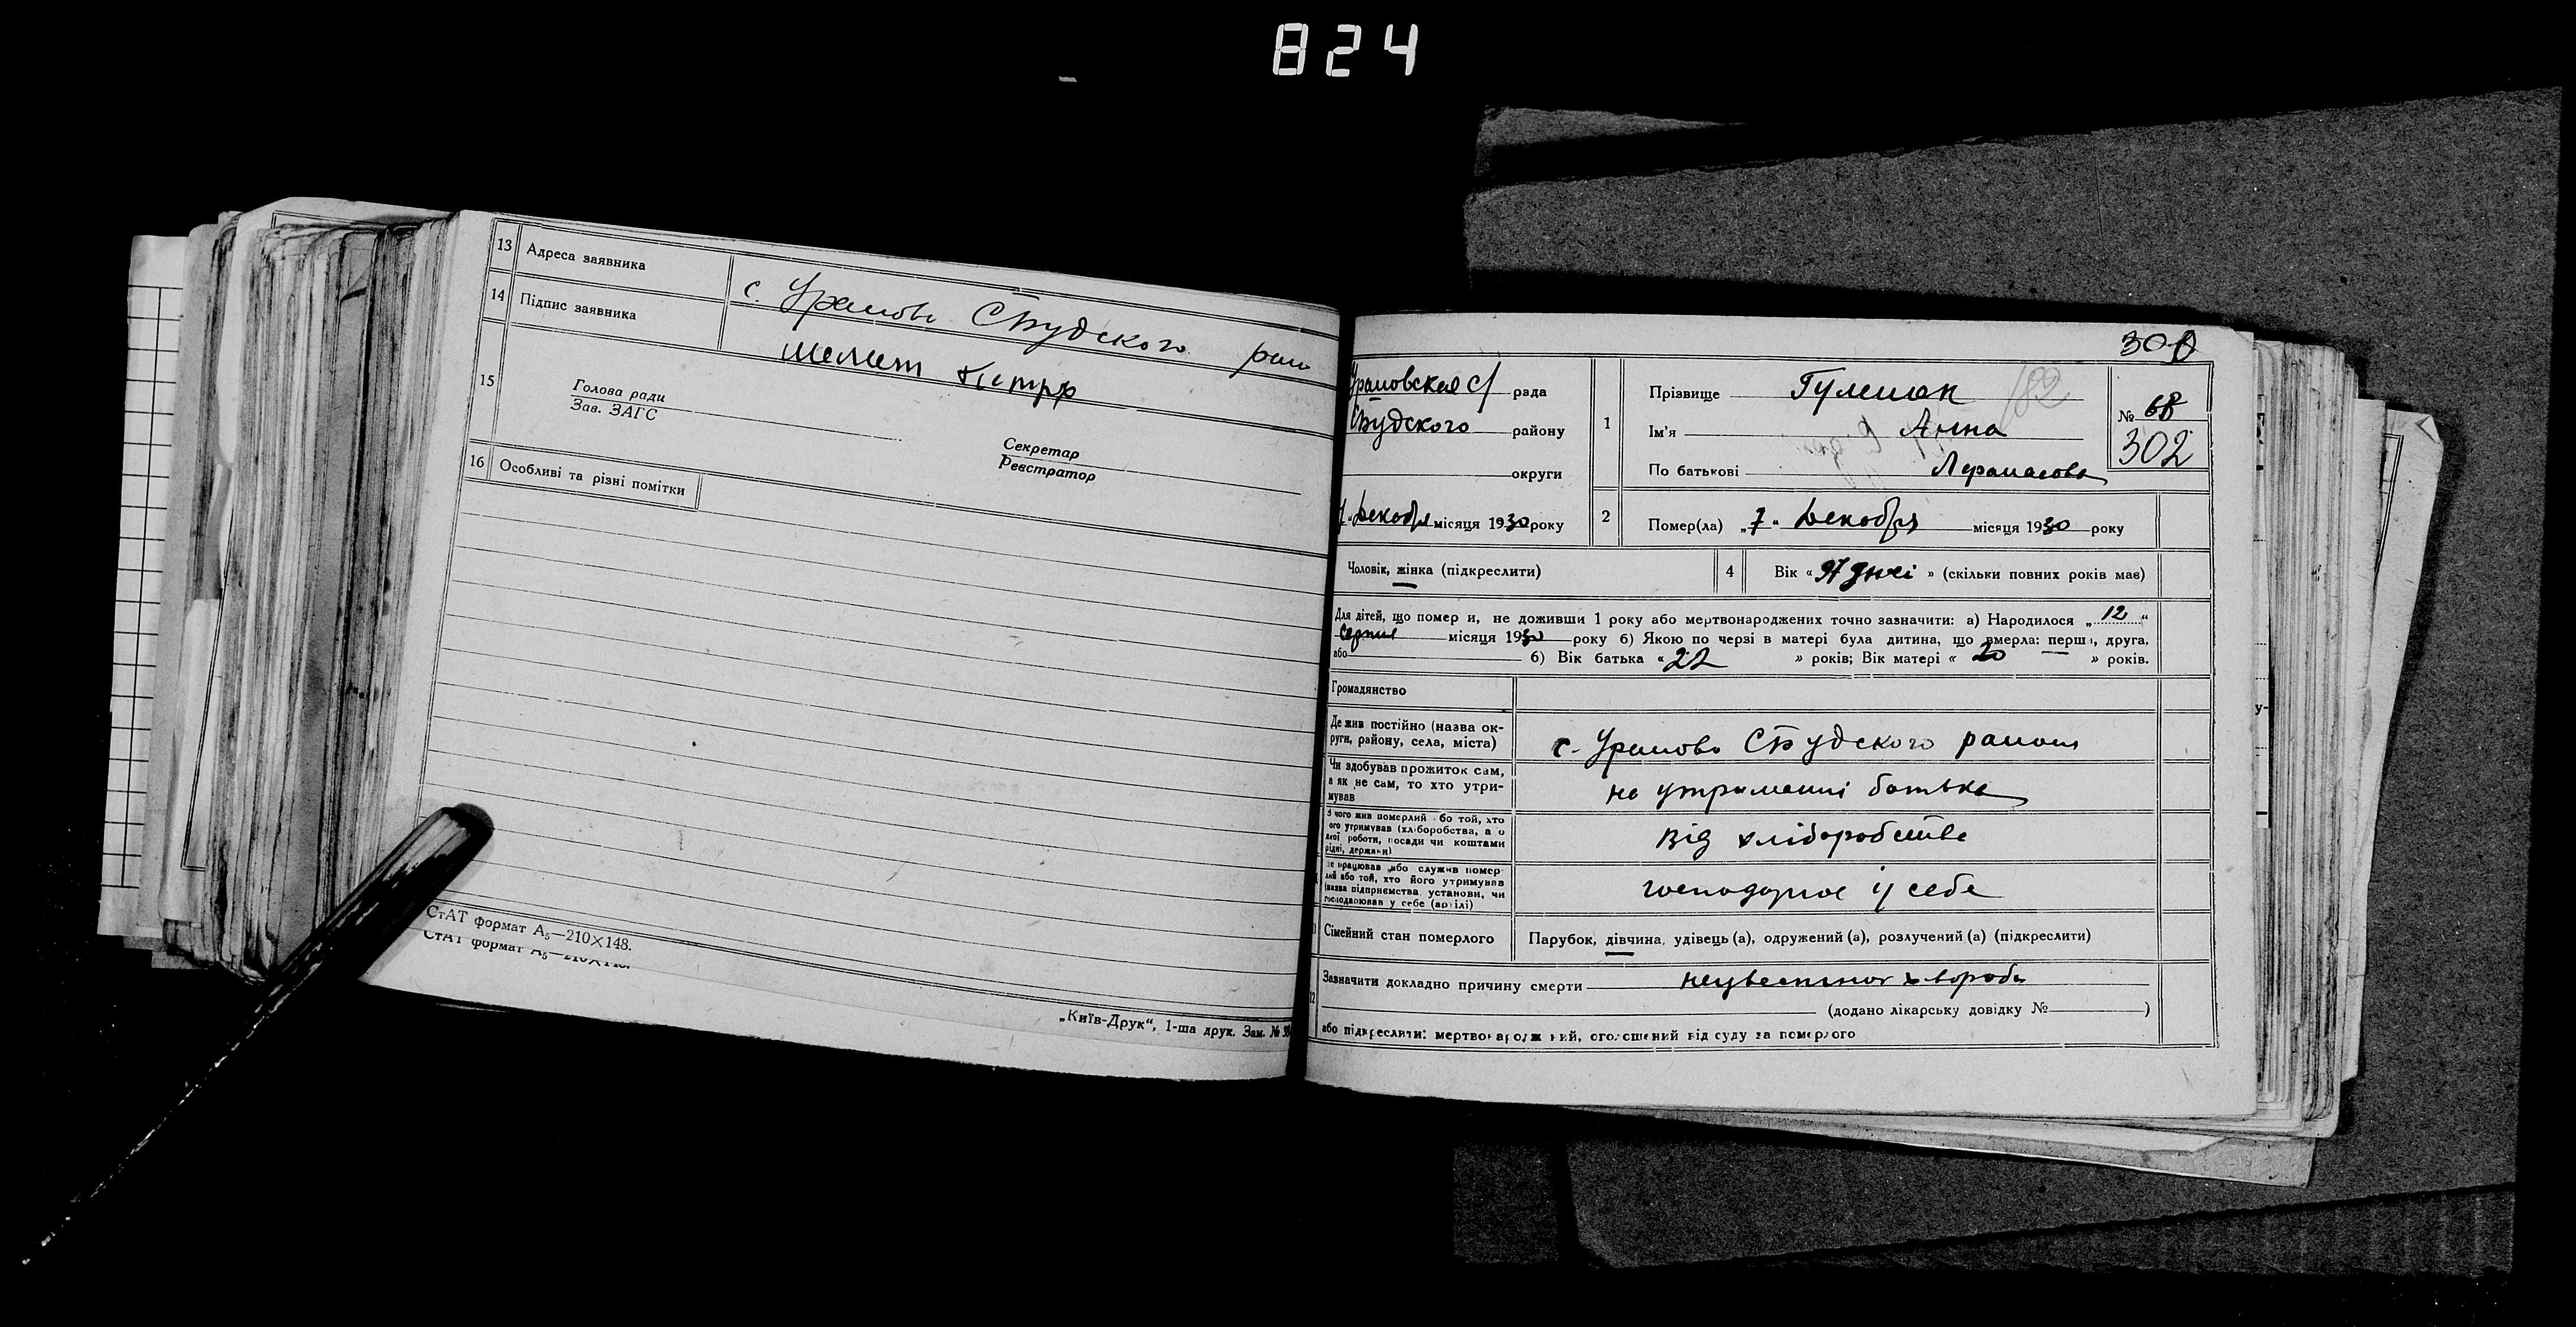 824
13 Адреса заявника с. Урамово СБудского рай
14 Підпис заявника
15 Голова ради
Зав. ЗАГС
Секретар
Реєстратор
16 Особливі та різні помітки
СтАТ формат А₅—210×148.
СтАТ формат А₅—210×148.
„Київ-Друк“, 1-ша друк. Зам. №
300
Урамовская с/ рада
СБудского району
округи
Декабря місяця 1930 року
1
Прізвище
Ім'я Анна
По батькові
№ 68
302
2 Помер(ла) „7“ Декабря місяця 1930 року
Чоловік, жінка (підкреслити)
4 Вік « 97 дней » (скільки повних років має)
Для дітей, що помер и, не доживши 1 року або мертвонароджених точно зазначити: а) Народилося „12“
Серпня місяця 1930 року б) Якою по черзі в матері була дитина, що вмерла: перша, друга,
або б) Вік батька «22» років; Вік матері «20» років.
Громадянство
Де жив постійно (назва ок-
руги, району, села, міста) с. Урамово СБудского района
Чи здобував прожиток сам,
а як не сам, то хто утри-
мував на утриманні батька
З чого жив померлий або той, хто
його утримував (хліборобства, а о
якої роботи, посади чи коштами
рідні, держави) від хліборобства
Де працював або служив помер-
лий або той, хто його утримував
(назва підприємства, установи, чи
господарював у себе (арtілі) господарює у себе
Сімейний стан померлого Парубок, дівчина, удівець (а), одружений (а), розлучений (а) (підкреслити)
12 Зазначити докладно причину смерти
(додано лікарську довідку № )
або підкреслити: мертвонароджений, оголошений від суду за померлого